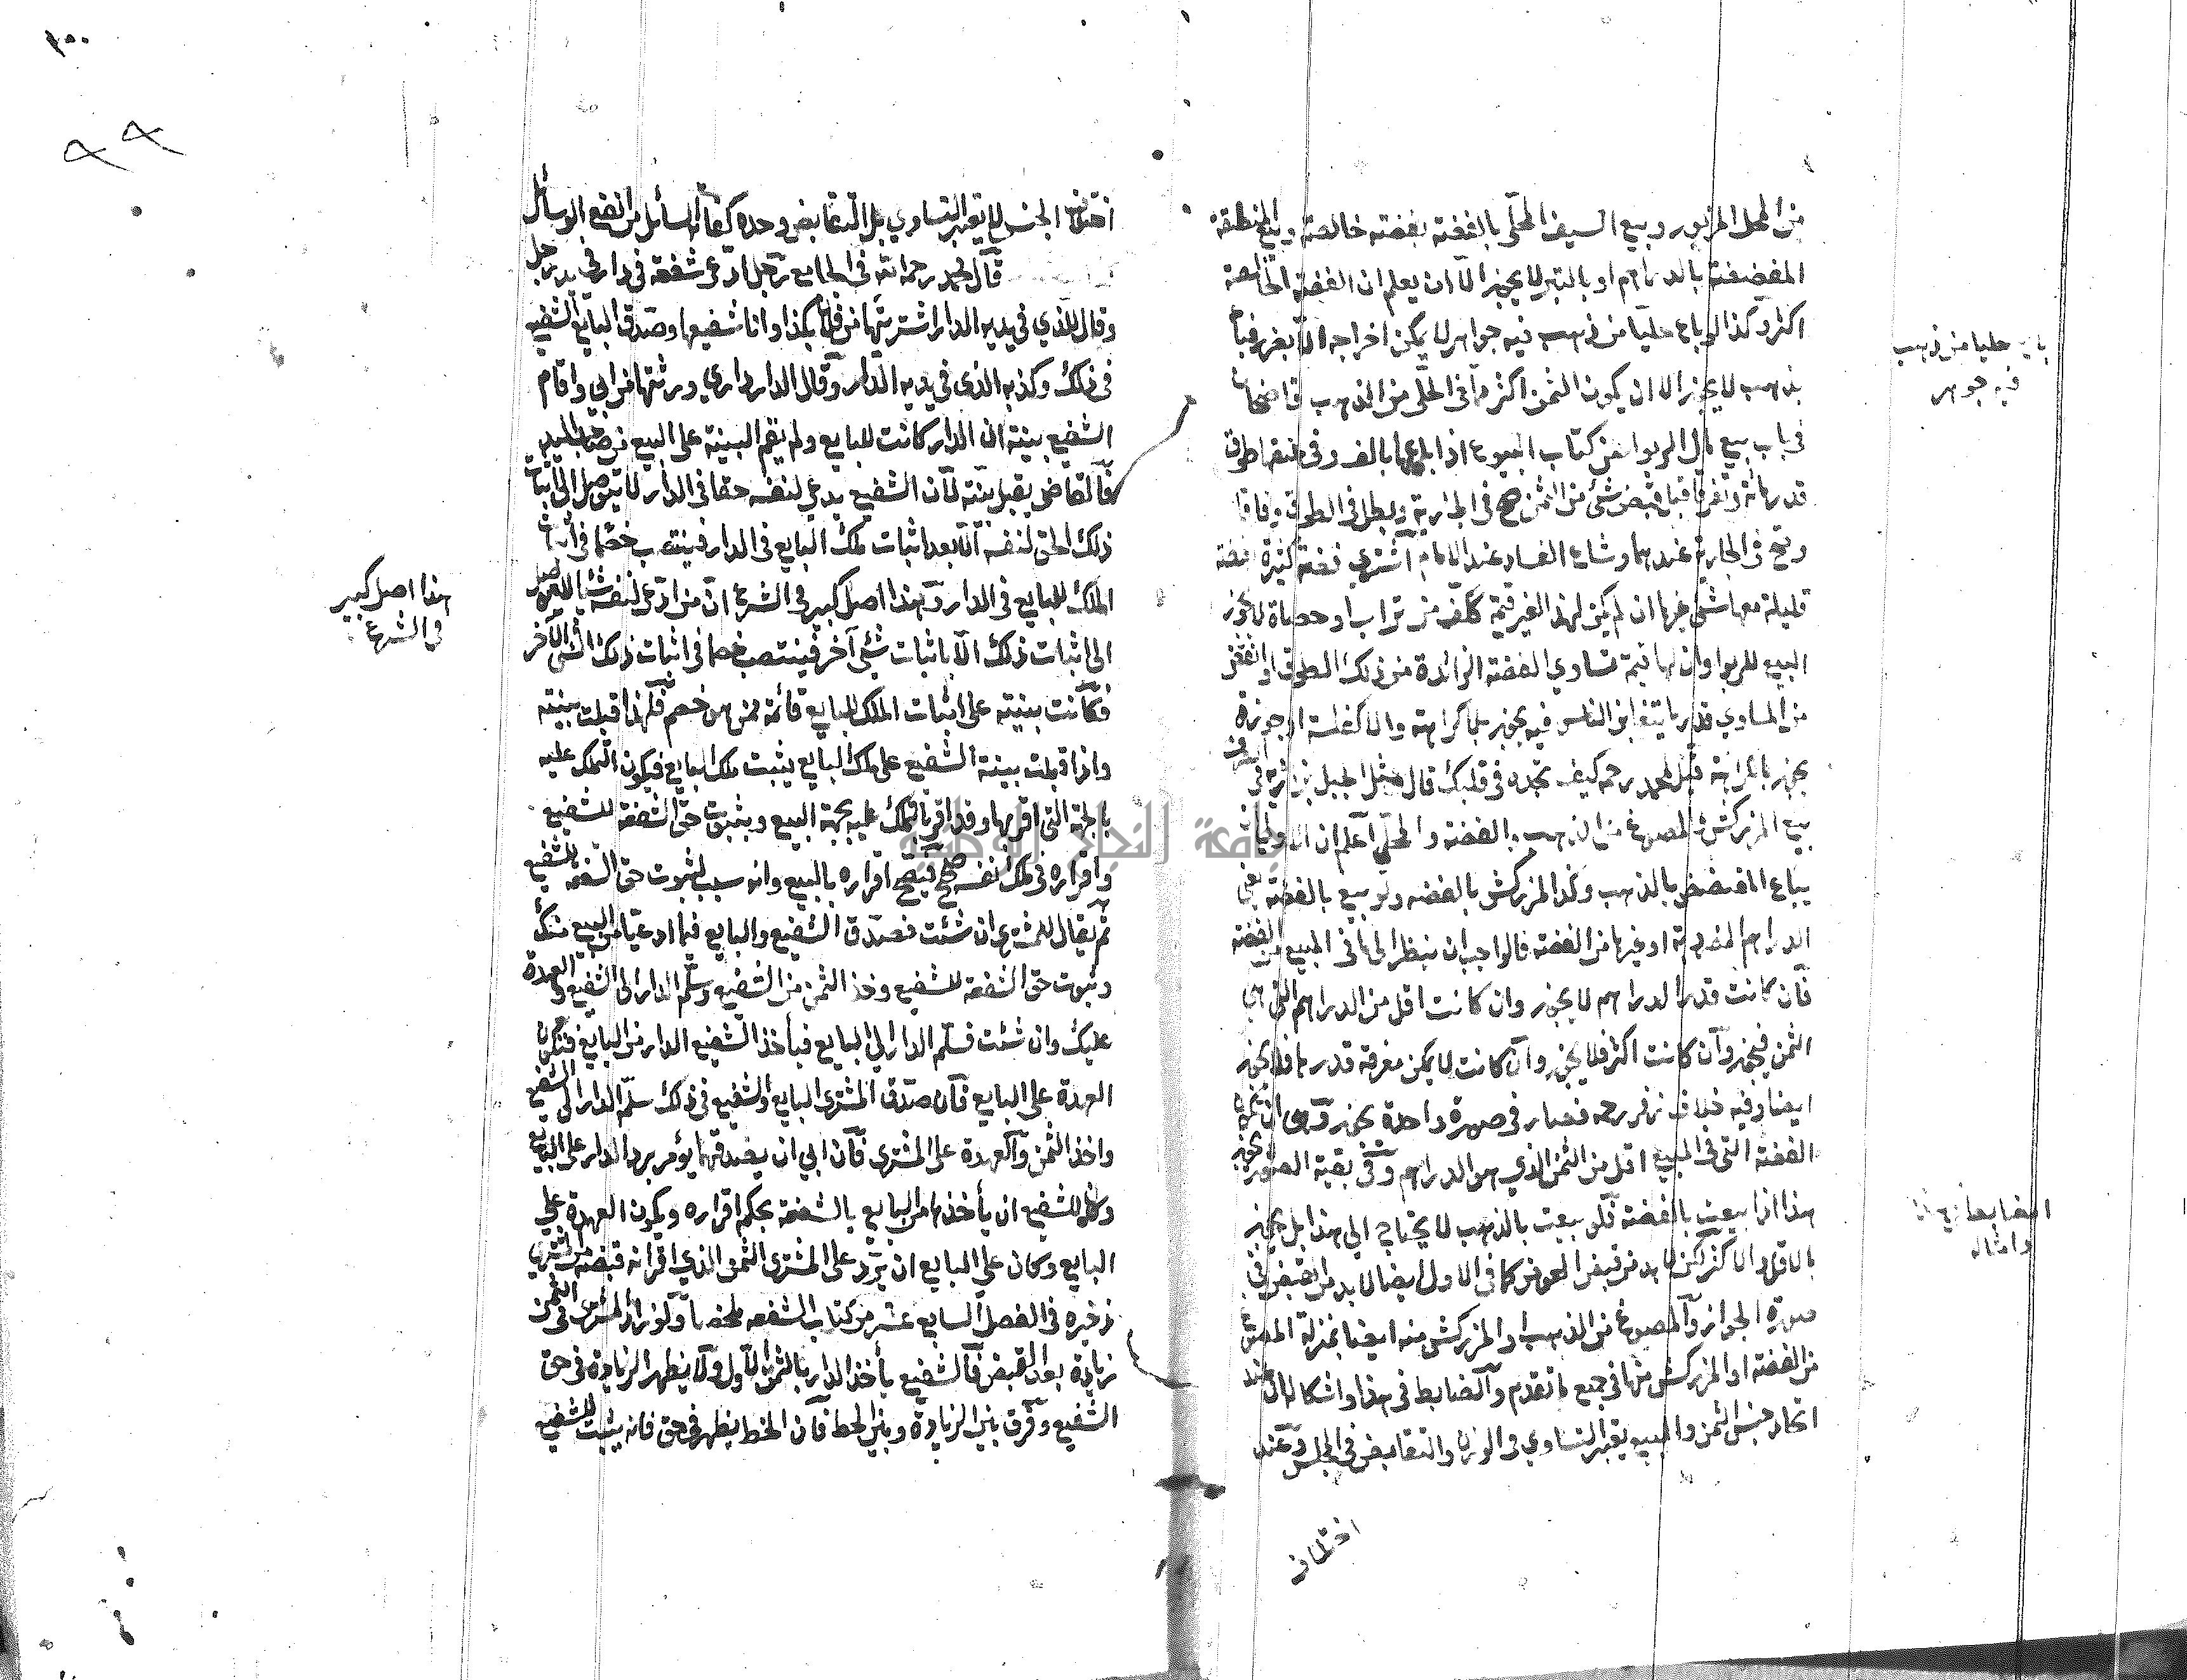 من المحل المزبور وبيع السيف المحلى بالفضة بفضة خالصة وبيع المنطقة
المفضضة بالدراهم او بالتبر لا يجوز الا ان يعلم ان الفضة الخالصة
اكثر وكذا لو باع حليا من ذهب فيه جواهر لا يمكن اخراجه الا بضرر فباع
بذهب لا يجوز الا ان يكون الثمن اكثر مما في الحلى من الذهب قاضيخان
في باب بيع مال الربوا من كتاب البيوع اذا باعها بالف وفي عنقها طوق
قدر مائة وتفرقا قبل قبض شئ من الثمن صح في الجارية وبطل في الطوق وفاقا
وصح في الجارية عندهما وشاع الفساد عند الامام اشترى فضة كثيرة بفضة
قليلة معها شئ غيرها ان لم يكن لهذا الغير قيمة ككف من تراب او حصاة لا يجوز
البيع للربوا وان لها قيمة تساوي الفضة الزائدة من ذلك الطوق او انقص
من المساوي قدر ما يتغابن الناس فيه يجوز بلا كراهة والا كفلسة او جوزة
يجوز بالكراهة قيل لمحمد رحمه كيف تجده في قلبك قال مثل الجبل بزازيه في الصرف
بيع المزركش والمصوغ من الذهب والفضة والمحلى اعلم ان الاولى ان
يباع المفضض بالذهب وكذا المزركش بالفضه ولو بيع بالفضة يعني
الدراهم المضروبة او غيرها من الفضة فالواجب ان ينظر الى ما في المبيع من الفضة
فان كانت قدر الدراهم لا يجوز وان كانت اقل من الدراهم التي هي
الثمن فيجوز وان كانت اكثر فلا يجوز وان كانت لا يمكن معرفة قدرها فلا يجوز
ايضا وفيه خلاف زفر رحمه فصار في صورة واحدة يجوز وهي ان تكون
الفضة التي في المبيع اقل من الثمن الذي هو الدراهم وفي بقية الصور لا يجوز
هذا اذا بيعت بالفضة فلو بيعت بالذهب لا يحتاج الى هذا بل يجوز
بالاقل والاكثر لكن لا بد من قبض العوض كما في الاول ايضا لا بد من القبض في
صورة الجواز والمصوغ من الذهب او المزركش منه ايضا بمنزلة المصوغ
من الفضة او المزركش منها في جميع ما تقدم والضابط في هذا واشكاله ان عند
اتحاد جنس الثمن والمبيع يعتبر التساوي في الوزن والتقابض في المجلس وعند
اختلاف
باع حليا من ذهب
فيه جوهر
وامثاله
٣٥٠
٩٩
اختلاف الجنس لا يعتبر التساوي بل التقابض وحده كفاة السائل من انفع الوسائل
قال محمد رحمه الله في الجامع رجل ادعى شفعة في دار في يد رجل
وقال للذي في يديه الدار اشتريتها من فلان بكذا وانا شفيعها وصدق البايع الشفيع
في ذلك وكذبه الذي في يديه الدار وقال الدار داري ورثتها من ابي واقام
الشفيع بينة ان الدار كانت للبايع ولم يقم البينة على البيع من صاحب اليد
فالقاضي يقبل بينته لان الشفيع يدعي لنفسه حقا في الدار لا يتوصل الى اثبات
ذلك الحق لنفسه الا بعد اثبات ملك البايع في الدار فينتصب خصما في اثبات
الملك للبايع في الدار وهذا اصل كبير في الشرع ان من ادعى لنفسه شيئا لا يتوصل
الى اثبات ذلك الا باثبات شئ آخر فينتصب خصما في اثبات ذلك الشئ الآخر
فكانت بينته على اثبات الملك للبايع قائمة ممن هو خصم فلهذا قبلت بينته
واذا قبلت بينة الشفيع على ملك البايع يثبت ملك البايع فيكون التملك عليه
بالجهة التي اقر بها وقد اقر بالتملك عليه بجهة البيع وبثبوت حق الشفعة للشفيع
واقراره في ملك نفسه صحيح فيصح اقراره بالبيع وانه سبب لثبوت حق الشفعه للشفيع
ثم يقال للمشتري ان شئت فصدق الشفيع والبايع فيما ادعيا من البيع منك
وثبوت حق الشفعة للشفيع وخذ الثمن من الشفيع وسلم الدار الى الشفيع والعهدة
عليك وان شئت فسلم الدار الى البايع فيأخذ الشفيع الدار من البايع فتكون
العهدة على البايع فان صدق المشتري البايع والشفيع في ذلك سلم الدار الى الشفيع
واخذ الثمن والعهدة على المشتري فان ابي ان يصدقهما يؤمر برد الدار على البايع
وكان للشفيع ان يأخذها من البايع بالشفعة بحكم اقراره ويكون العهدة على
البايع وكان على البايع ان يرد على المشتري الثمن الذي اقر انه قبضه من المشتري
ذخيره في الفصل السابع عشر من كتاب الشفعه ملخصا ولو زاد المشتري في الثمن
زيادة بعد القبض فالشفيع يأخذ الدار بالثمن الاول ولا يظهر الزيادة في حق
الشفيع وفرق بين الزيادة وبين الحط فان الحط يظهر في حق فانه يثبت للشفيع
هذا اصل كبير
في الشرع
جامعة النجاح الوطنية